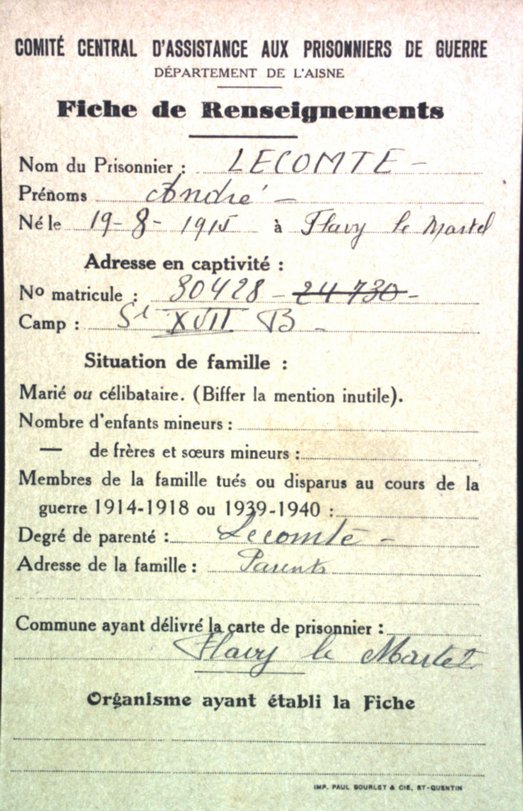 COMITÉ CENTRAL D'ASSISTANCE AUX PRISONNIERS DE GUERRE
DÉPARTEMENT DE L'AISNE
Fiche de Renseignements
Nom du Prisonnier : LECOMTE -
Prénoms André -
Né le 19-8-1915 à Flavy le Martel
Adresse en captivité :
No matricule : 30428 - 24730 -
Camp : St XVII B -
Situation de famille :
Marié ou célibataire. (Biffer la mention inutile).
Nombre d'enfants mineurs :
— de frères et sœurs mineurs :
Membres de la famille tués ou disparus au cours de la
guerre 1914-1918 ou 1939-1940 :
Degré de parenté : Lecomte -
Adresse de la famille : Parents
Commune ayant délivré la carte de prisonnier :
Flavy le Martel
Organisme ayant établi la Fiche
IMP. PAUL BOURLET & CIE, ST-QUENTIN